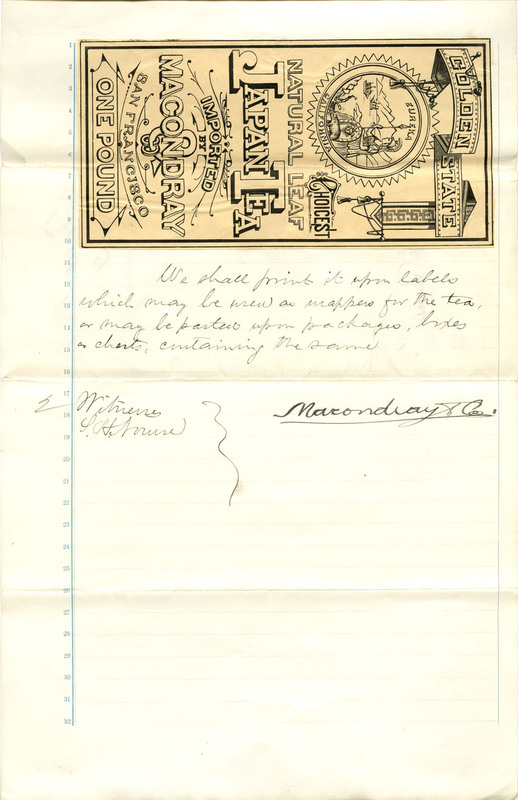 GOLDEN STATE
EUREKA
CHOICEST
NATURAL LEAF
JAPAN TEA
IMPORTED
BY
MACONDRAY
& CO
SAN FRANCISCO
ONE POUND
1
2
3
4
5
6
7
8
9
10
11
We shall print it upon labels
12
13
which may be used as wrappers for the tea,
14
or may be pasted upon packages, boxes
15
or chests, containing the same
16
17
Witness
Macondray & Co.
18
19
20
21
22
23
24
25
26
27
28
29
30
31
32